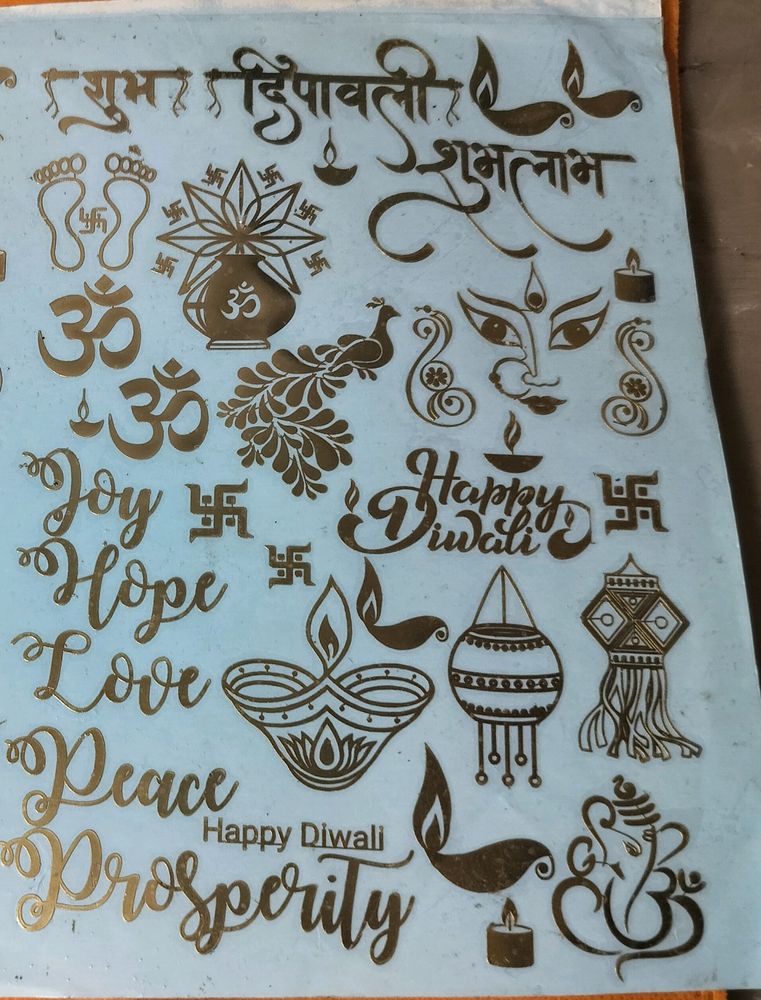 शुभ दिपावली
शुभलाभ
ॐ
ॐ
ॐ
Joy
Happy
Diwali
Hope
Love
Peace
Happy Diwali
Prosperity
ॐ